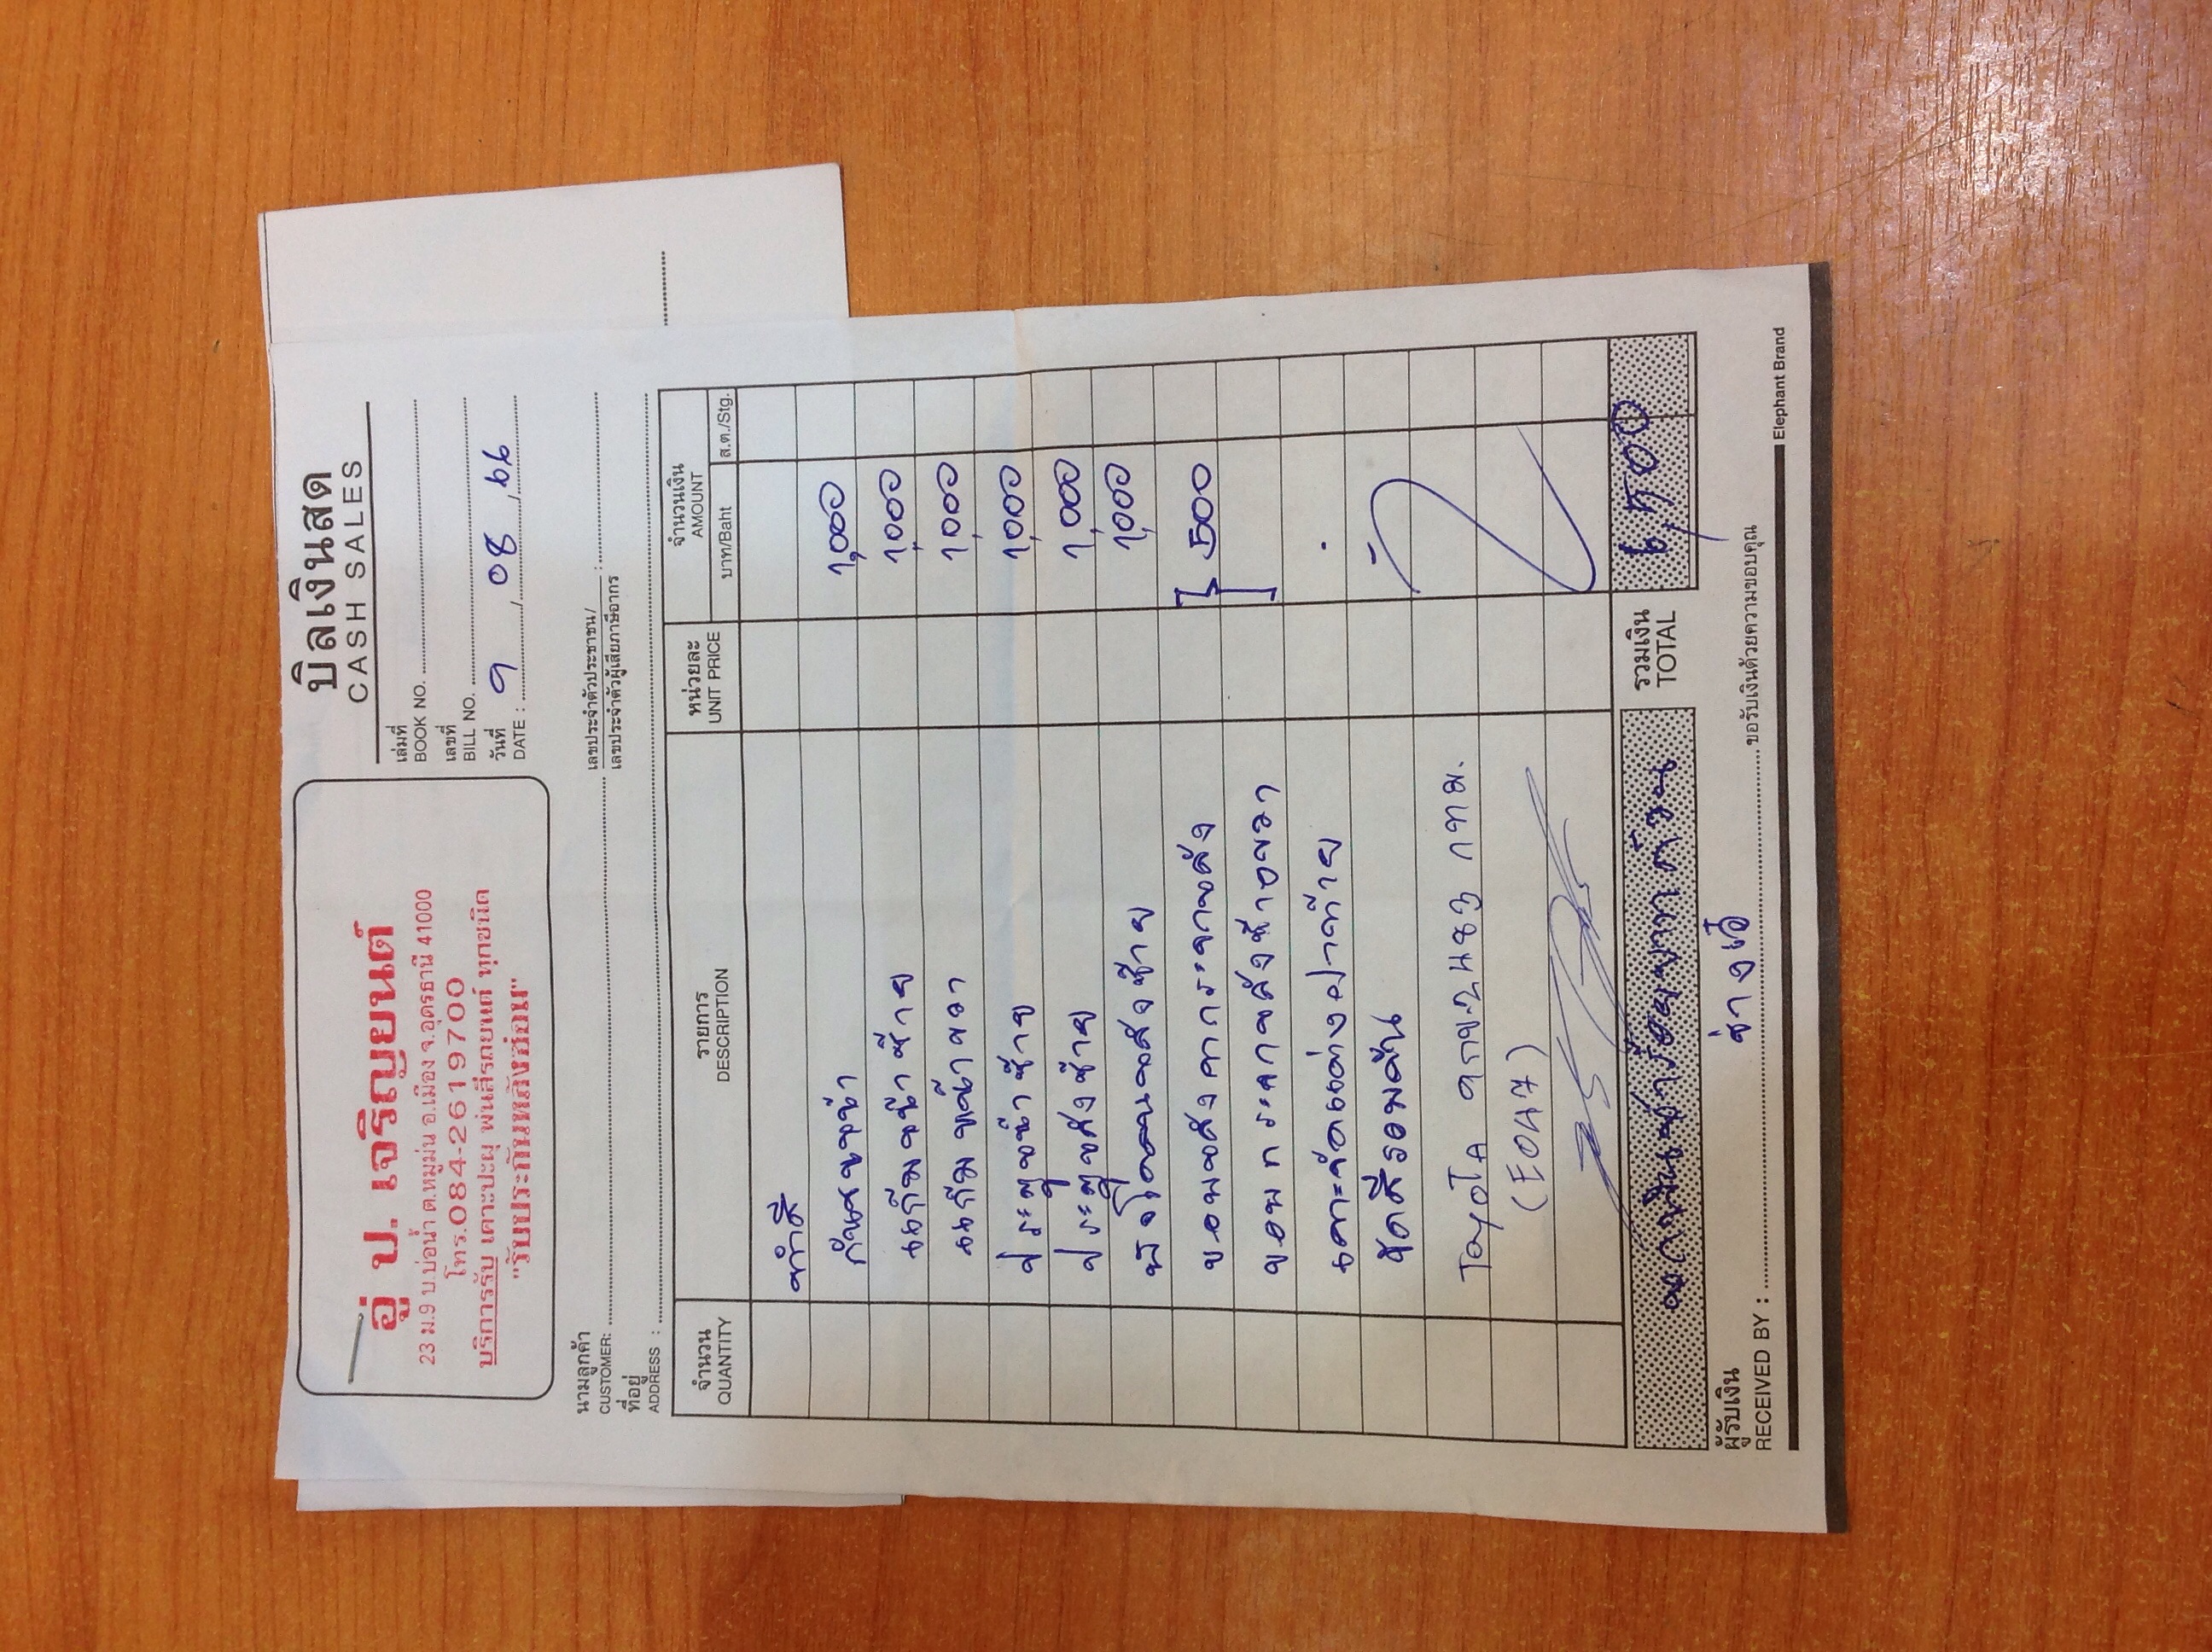 อู่ ป. เจริญยนต์
23 ม.9 บ.บ่อน้ำ ต.หมูม่น อ.เมือง จ.อุดรธานี 41000
โทร.084-2619700
บริการรับ เคาะปะผุ พ่นสีรถยนต์ ทุกชนิด
"รับประกันหลังซ่อม"
บิลเงินสด
CASH SALES
เล่มที่
BOOK NO.
เลขที่
BILL NO.
วันที่
DATE : 9, 08, 66
นามลูกค้า
CUSTOMER:
เลขประจำตัวประชาชน/
เลขประจำตัวผู้เสียภาษีอากร :
ที่อยู่
ADDRESS :
จำนวน รายการ หน่วยละ จำนวนเงิน
QUANTITY DESCRIPTION UNIT PRICE AMOUNT
บาท/Baht ส.ต./Stg.
ทำสี
กันชนหน้า 1,000
แก้มหน้าซ้าย 1,000
แก้มหน้าขวา 1,000
ประตูหน้าซ้าย 1,000
ประตูหลังซ้าย 1,000
บังโคลนหลังซ้าย 1,000
ขอบหลังคากระจกหลัง 500
ขอบกระจกหลังข้างขวา
เคาะ
ขัดสีรอบคัน
TOYOTA กทม.
(E0A7)
หกพันห้าร้อยบาทถ้วน
รวมเงิน
TOTAL 6,500
ผู้รับเงิน
RECEIVED BY : ช่าง ขอรับเงินด้วยความขอบคุณ
Elephant Brand